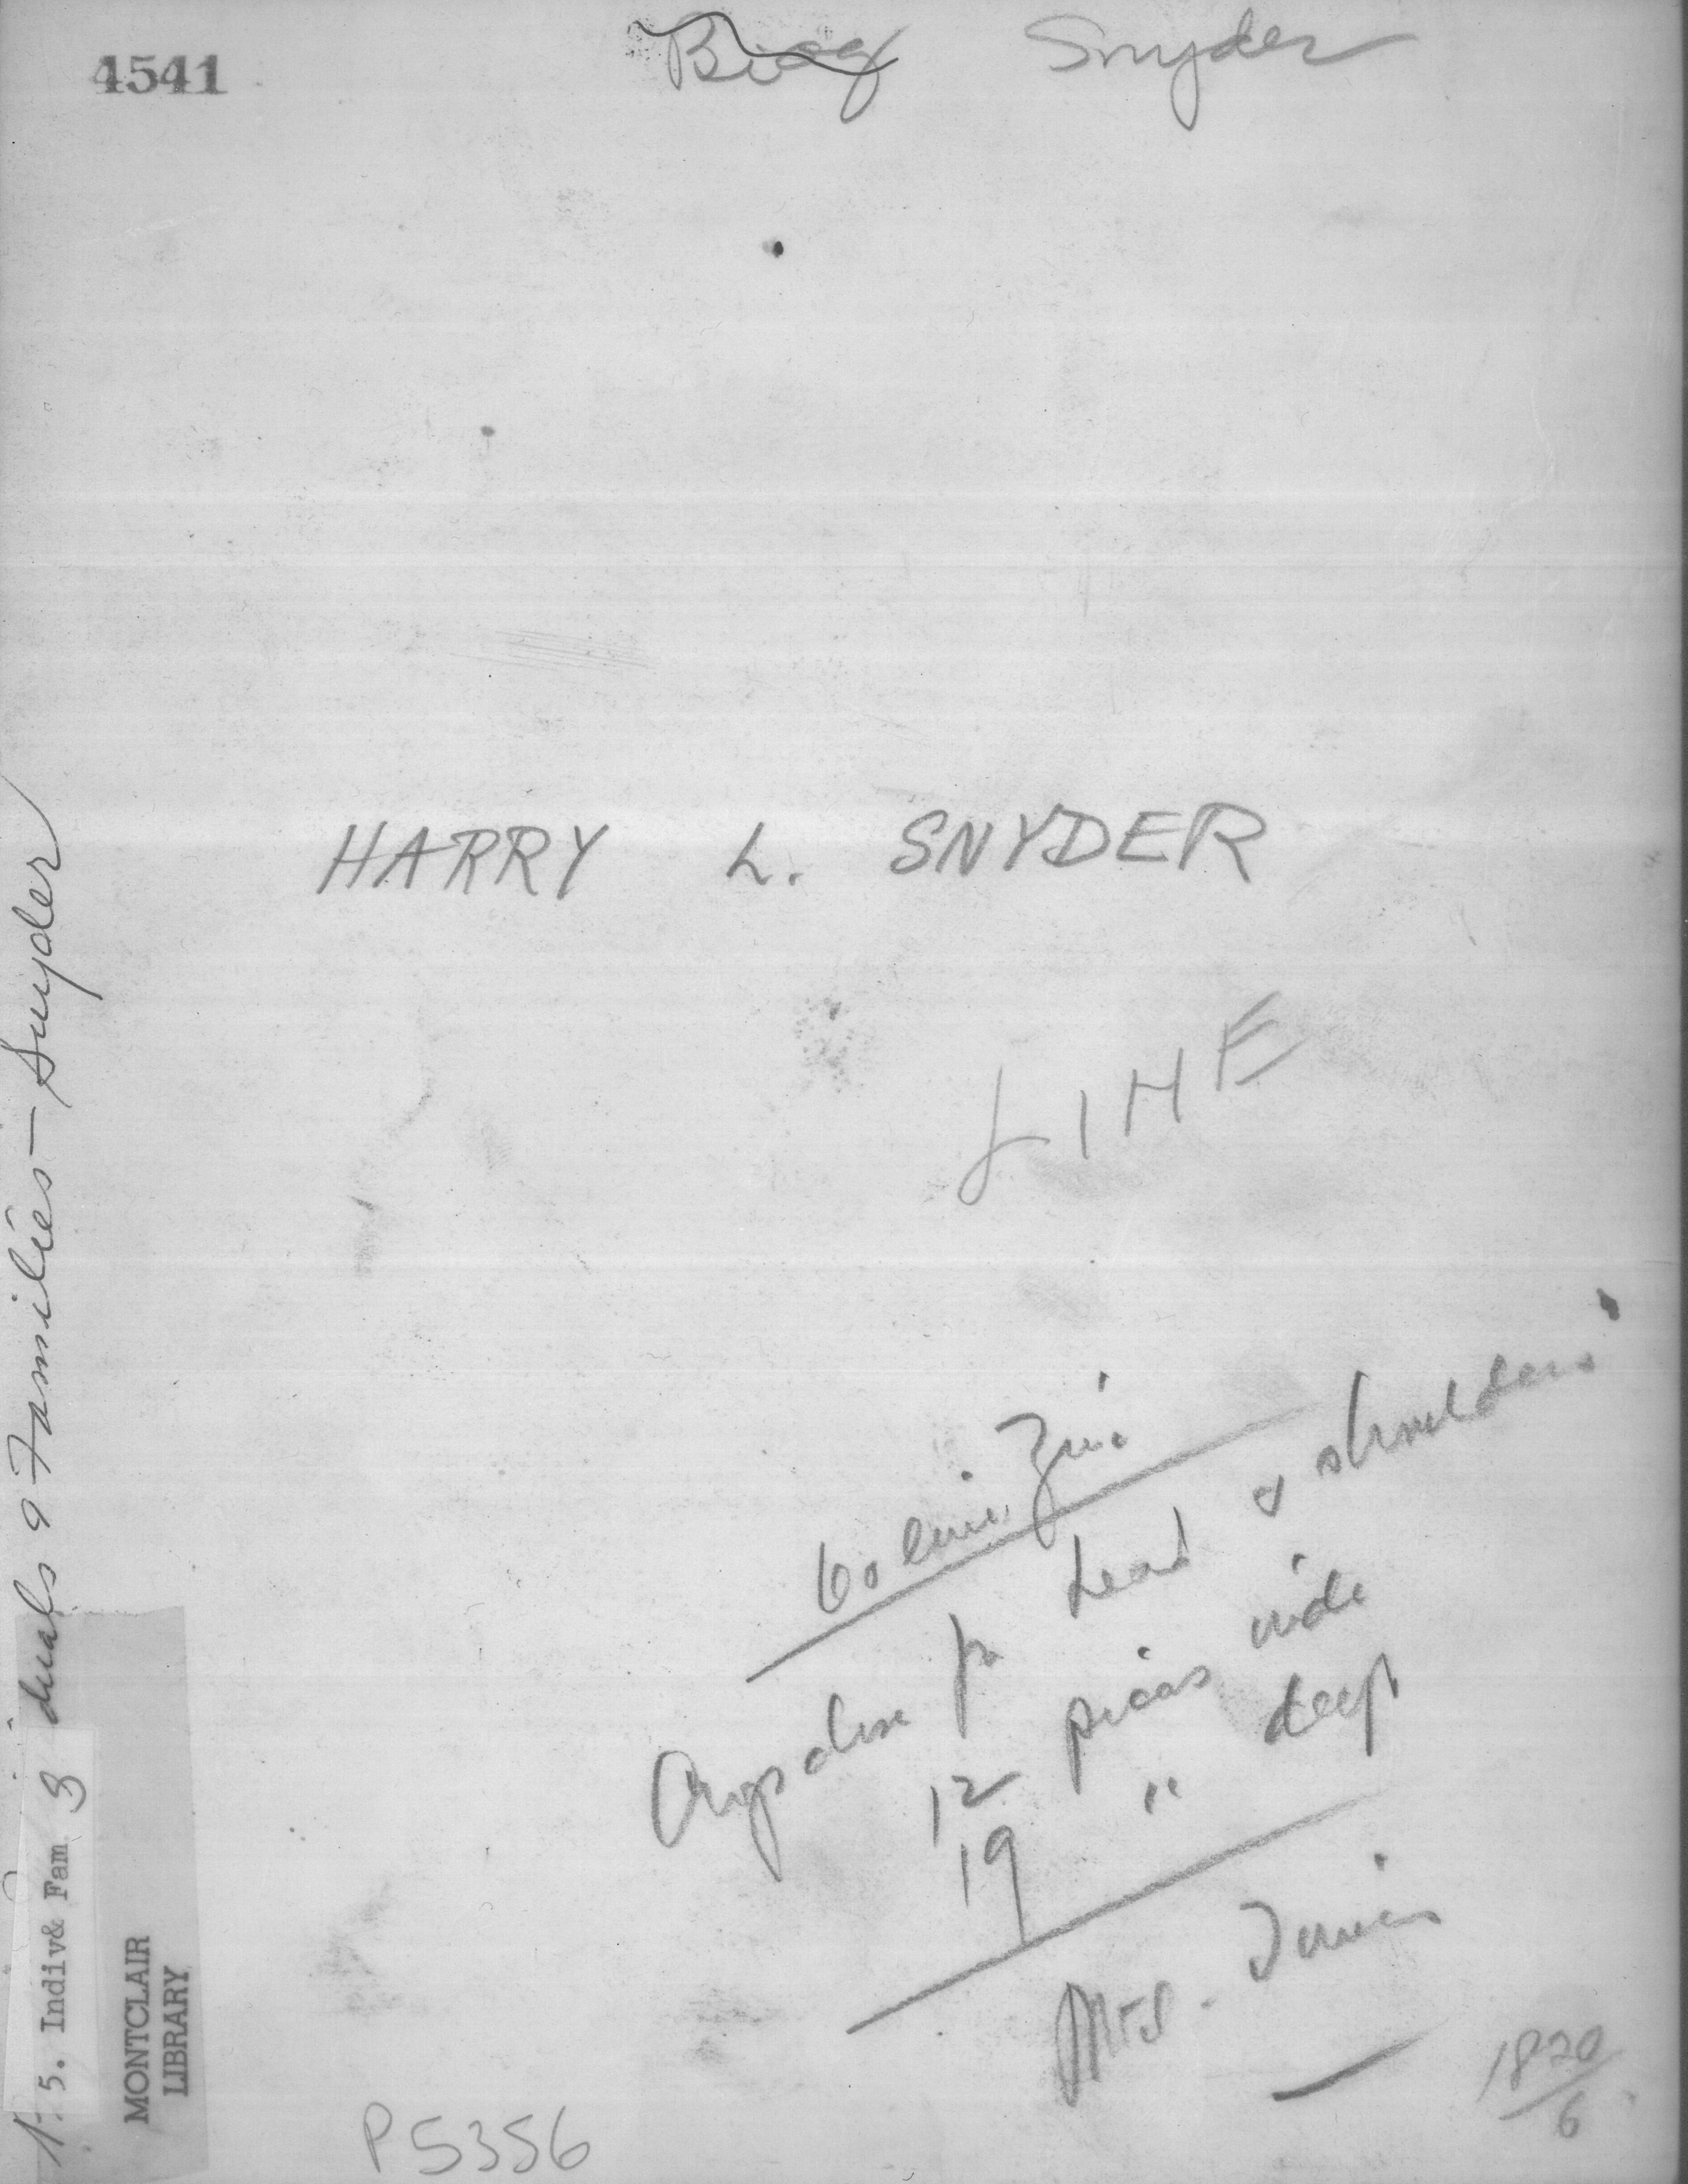 4541
Biog Snyder
HARRY L. SNYDER
LINE
60 line Zinc
Crop close for head & shoulders
12 picas wide
19 " deep
Mrs.
1820/6
P5356
duals & Families - Snyder
5. Indiv& Fam 3
MONTCLAIR
LIBRARY